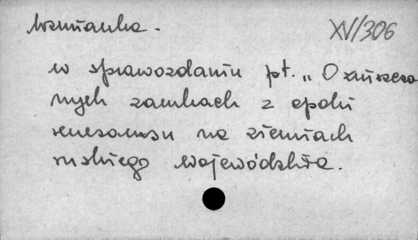 Wzmianka.
XV/306
w sprawozdaniu pt. „O zniszczo
nych zamkach z epoki
renesansu na ziemiach
ruskiego województwa.